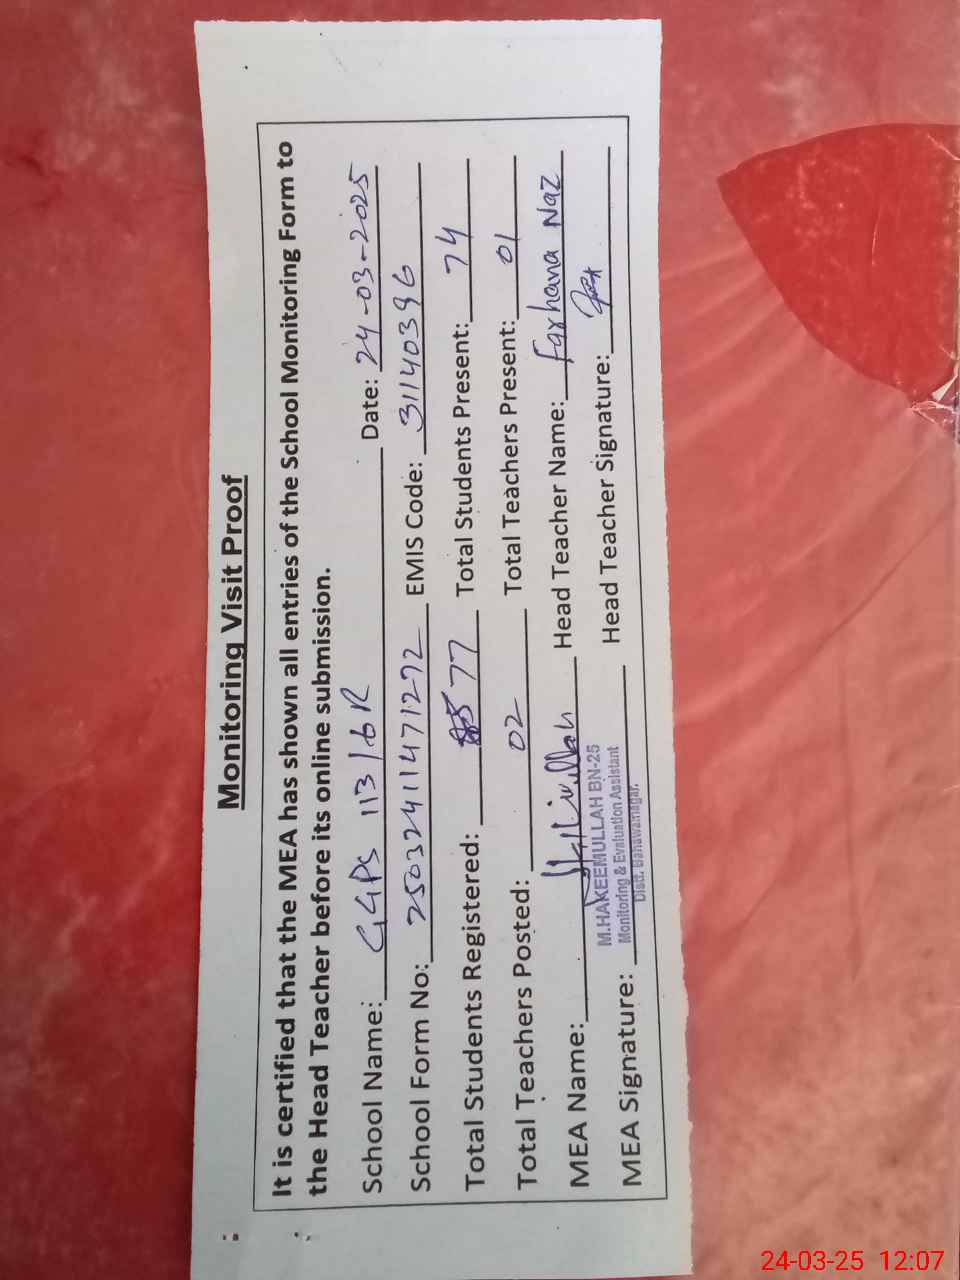 Monitoring Visit Proof
It is certified that the MEA has shown all entries of the School Monitoring Form to
the Head Teacher before its online submission.
School Name: GGPS 113/6R Date: 24-03-2025
School Form No: 25032411471272 EMIS Code: 31140396
Total Students Registered: 77 Total Students Present: 74
Total Teachers Posted: 02 Total Teachers Present: 01
MEA Name: Head Teacher Name: Farhana Naz
M.HAKEEMULLAH BN-25
Monitoring & Evaluation Assistant
Distt. Bahawalnagar.
MEA Signature: Head Teacher Signature:
24-03-25 12:07